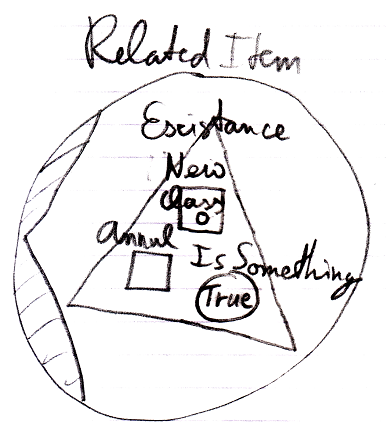 Related Item
Existance
New
Class
Annul
Is Something
True